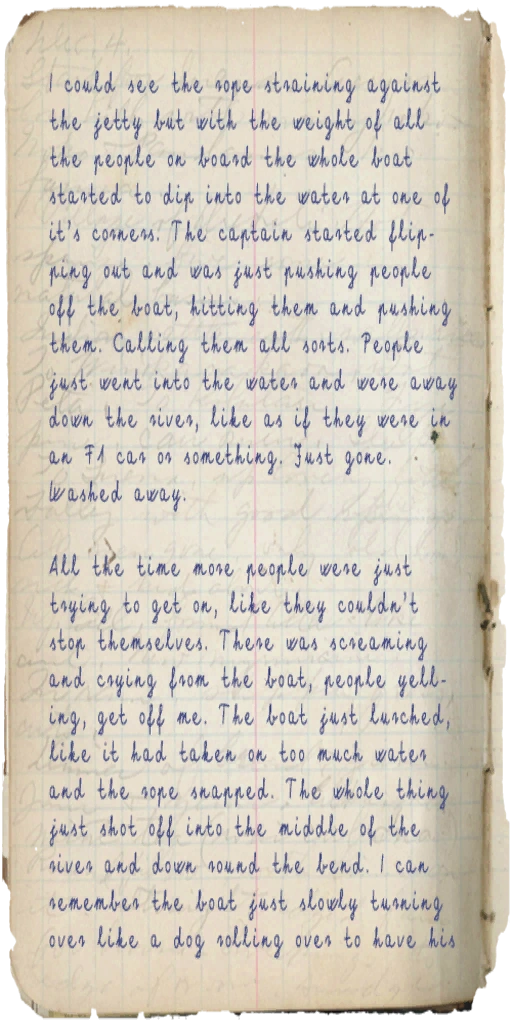 I could see the rope straining against
the jetty but with the weight of all
the people on board the whole boat
started to dip into the water at one of
it's corners. The captain started flip-
ping out and was just pushing people
off the boat, hitting them and pushing
them. Calling them all sorts. People
just went into the water and were away
down the river, like as if they were in
an F1 car or something. Just gone.
Washed away.

All the time more people were just
trying to get on, like they couldn't
stop themselves. There was screaming
and crying from the boat, people yell-
ing, get off me. The boat just lurched,
like it had taken on too much water
and the rope snapped. The whole thing
just shot off into the middle of the
river and down round the bend. I can
remember the boat just slowly turning
over like a dog rolling over to have his